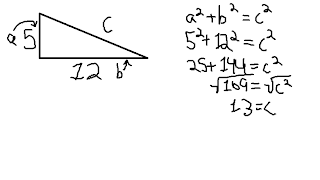 a 5
c
12 b
a² + b² = c²
5² + 12² = c²
25 + 144 = c²
√169 = √c²
13 = c